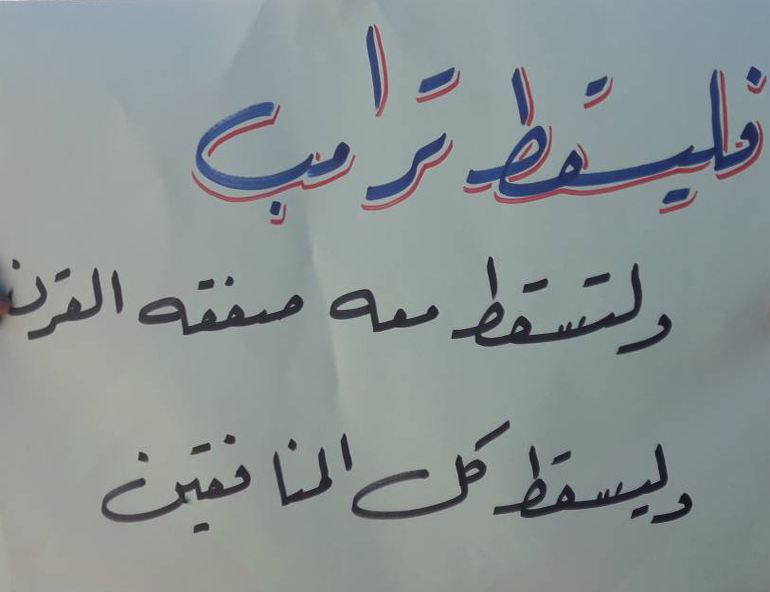 فليسقط ترامب
ولتسقط معه صفقه القرن
وليسقط كل المنافقين